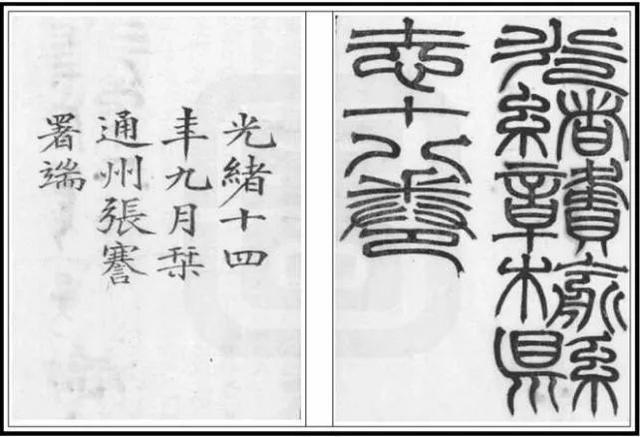 光緒贛榆縣
志十八卷
光緒十四
年九月栞
通州張謇
署端